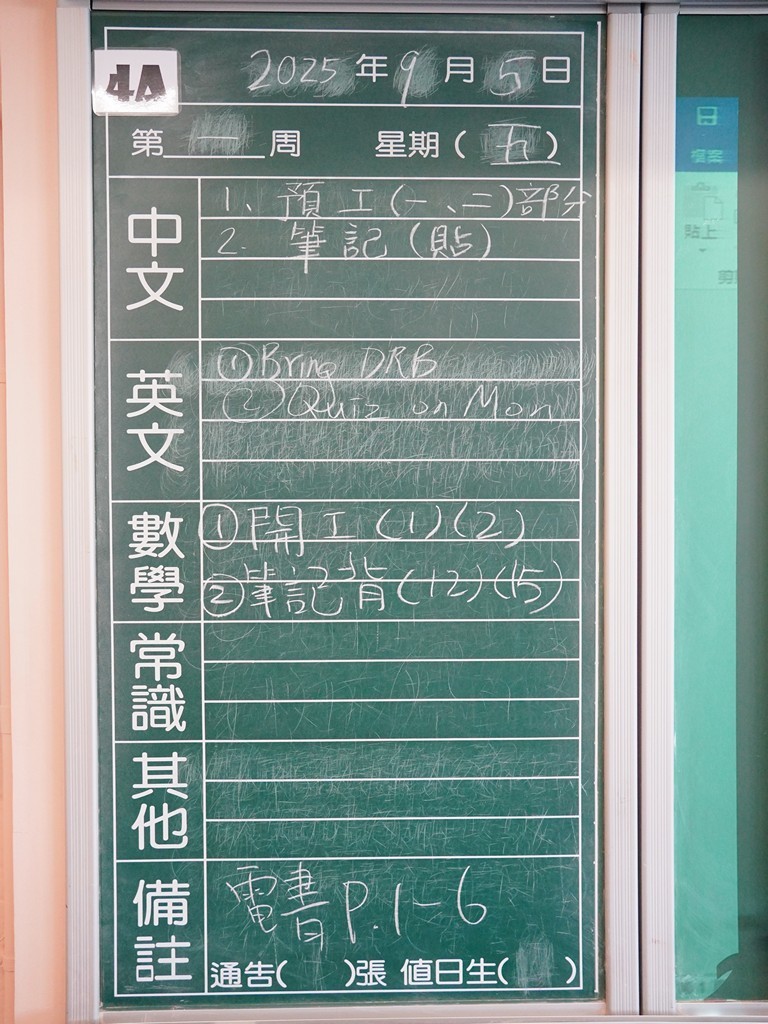 4A
2025年9月5日
第一周 星期(五)
中文
1、預工(一、二)部分
2. 筆記(貼)
英文
①Bring DRB
②Quiz on Mon
數學
①開工(1)(2)
②筆記背(12)(15)
常識
其他
備註
電書P.1-6
通告( )張 值日生( )
檔案
貼上
剪